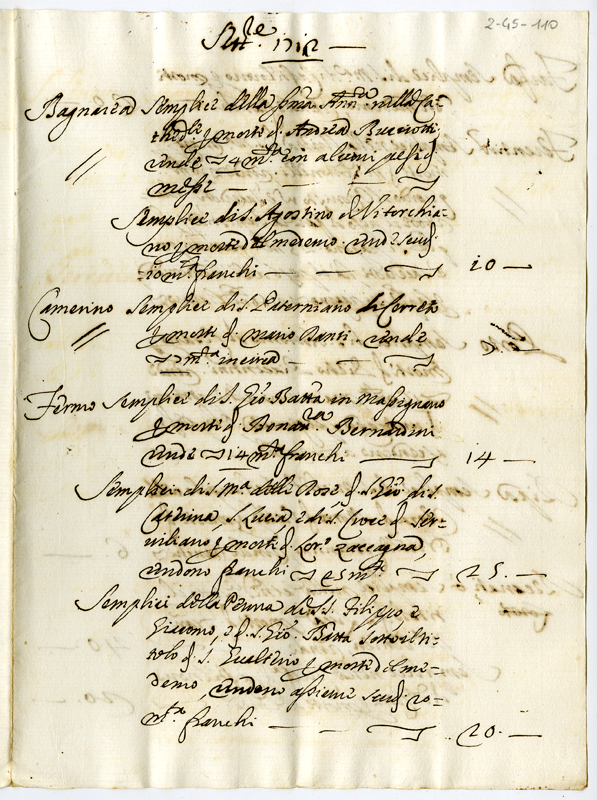 2-45-110
7bre. 1712 —
Bagnarea Semplice della SSma Annta. nella Ca=
thedle. p morte d. Andrea Bucciotti
rende 4 mta. con alcuni pesi di
messe
Semplice di S. Agostino di Vitorchia=
no p morte del medemo. rende scudi
10 mta. franchi — 10 —
Camerino Semplice di S. Paterniano di Cerreto
p morte d. Mario Santi. rende
mta. incirca
Fermo Semplice di S. Gio Batta in Massignano
p morte d. Bonavra. Bernardini
rende 14 mta. franchi — 14 —
Semplici di S. Ma. delle Rose d. S. Gio. di S.
Caterina, S. Lucia, e di S. Croce d. Ser=
viliano p morte d. Lor. Zaccagna,
rendono franchi 25 mta. 25. —
Semplici della Penna di SS. Filippo e
Giacomo, e d. S. Gio. Batta sotto il ti=
tolo d. S. p morte del me=
demo, rendono assieme scudi 20=
mta. franchi — 20. —